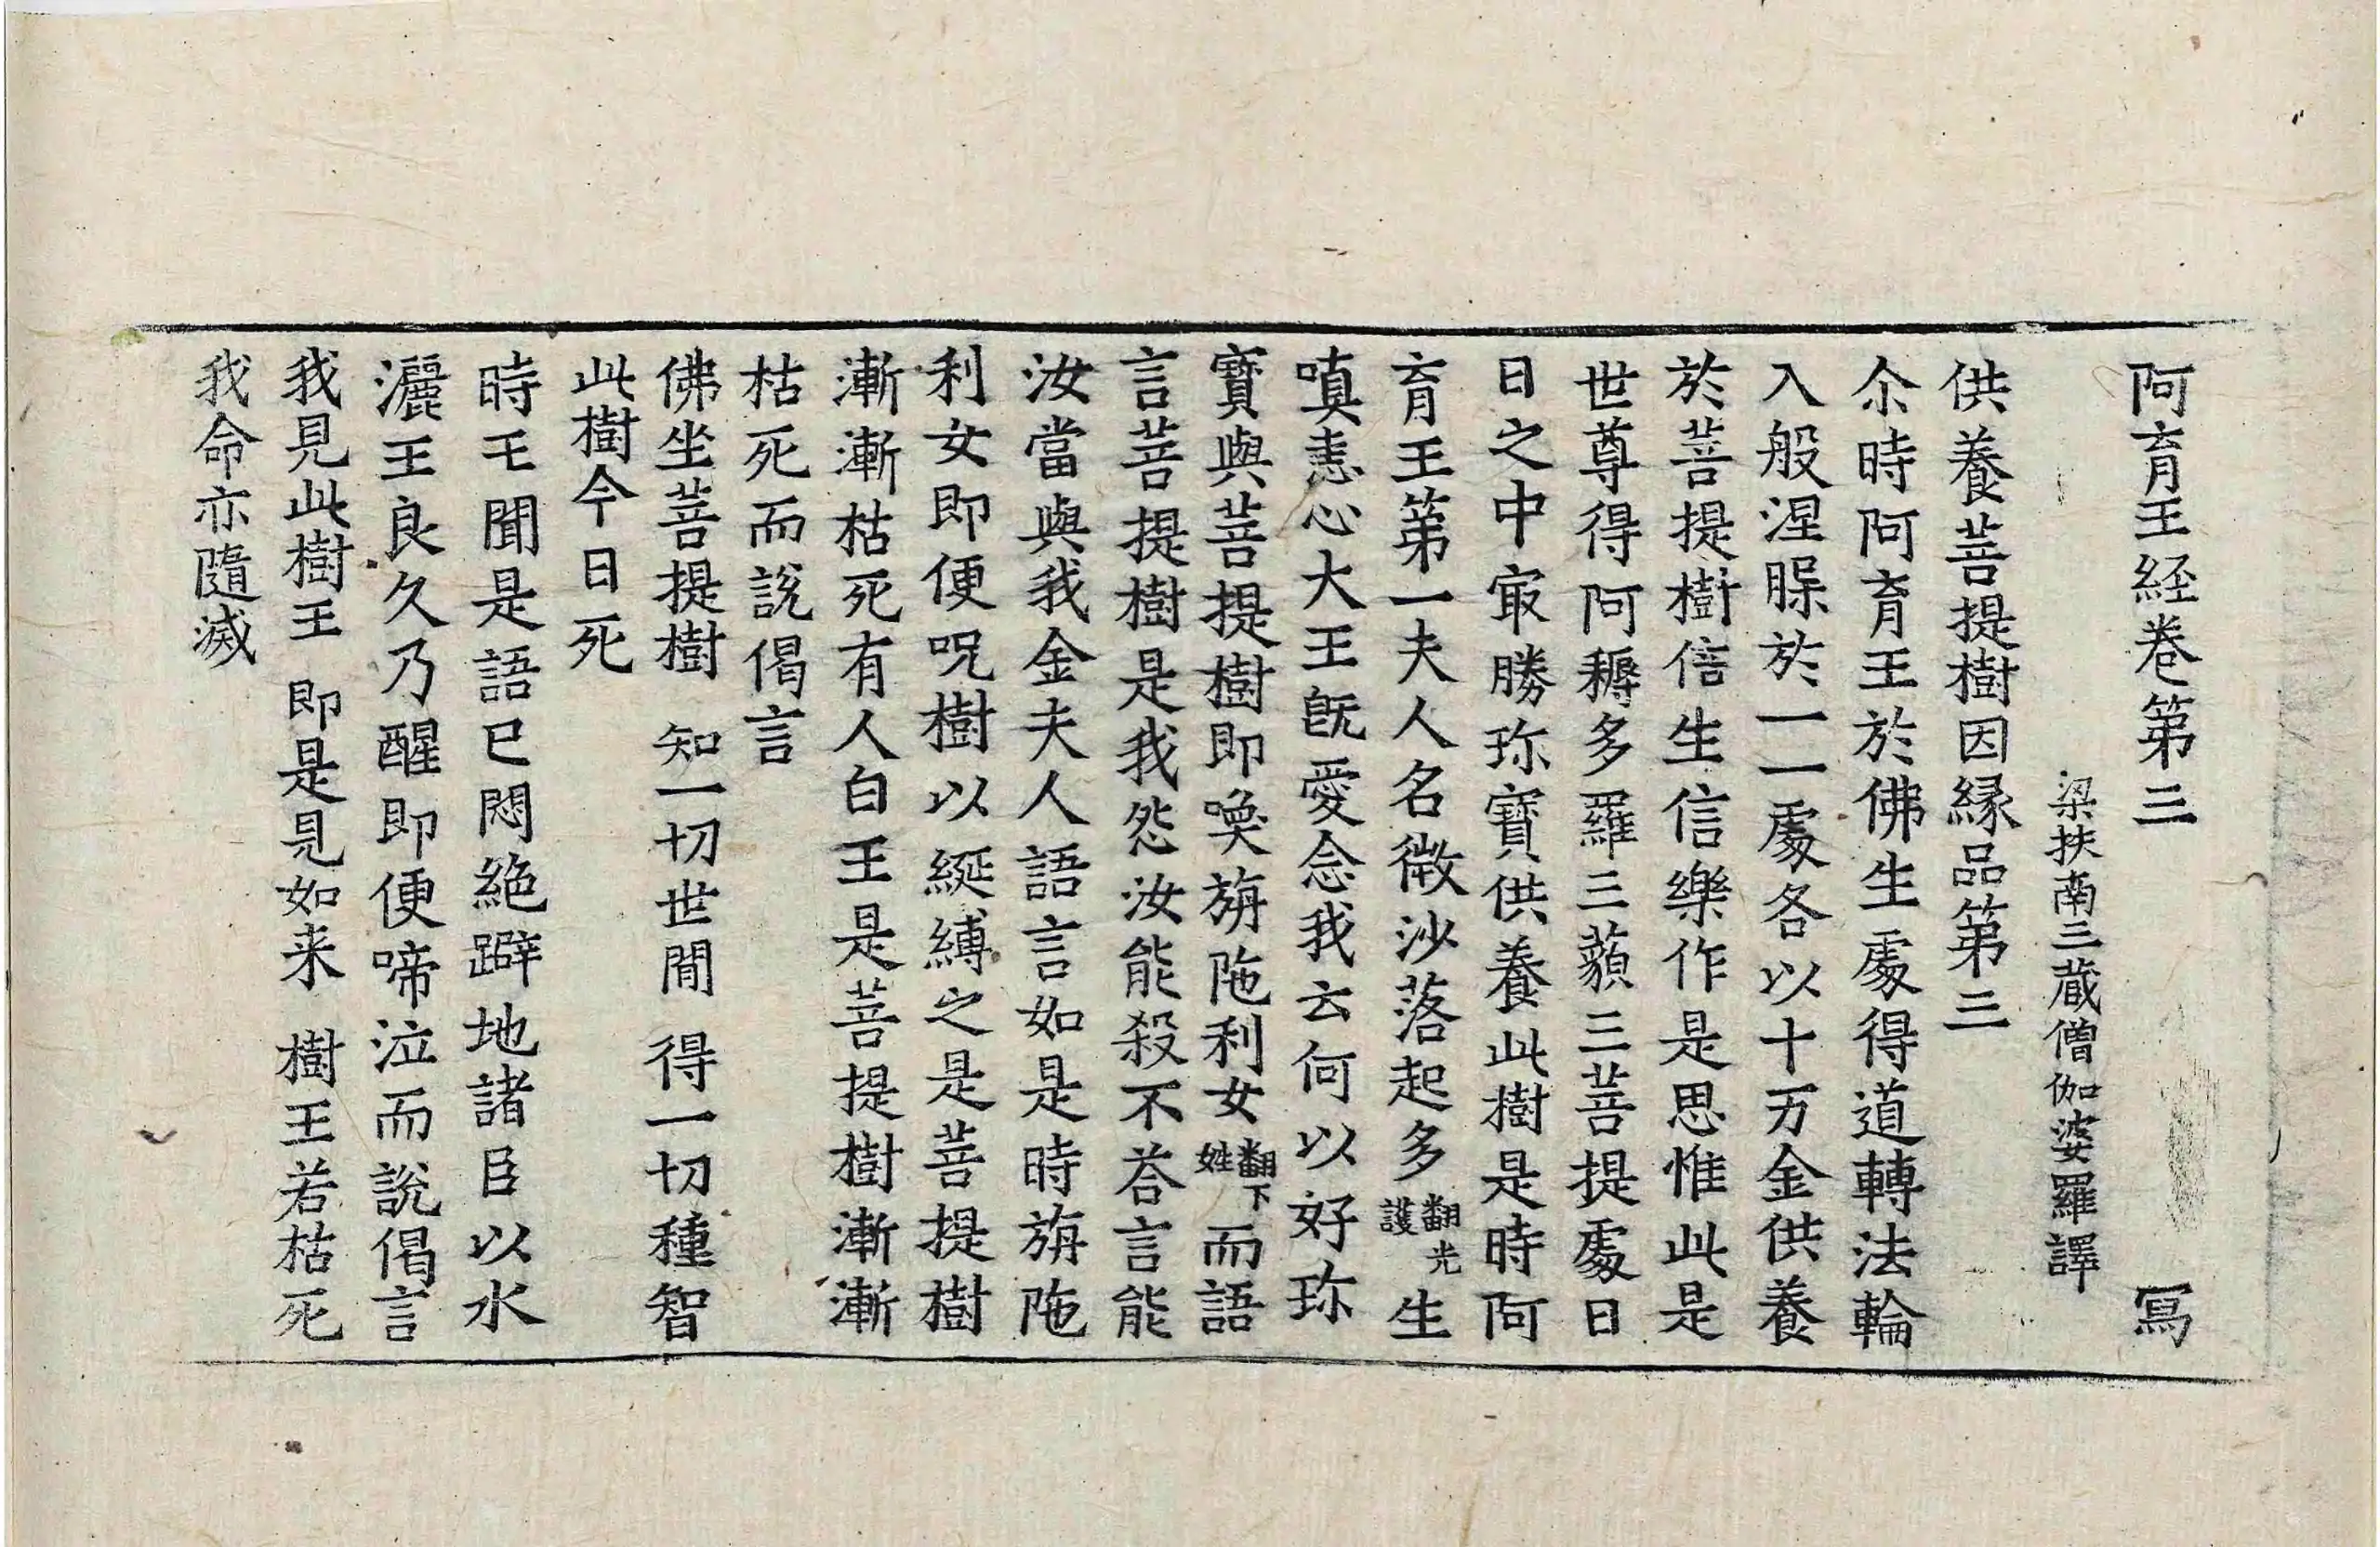 阿育王経卷第三 寫
梁扶南三蔵僧伽婆羅譯
供養菩提樹因縁品第三
尒時阿育王於佛生䖏得道轉法輪
入般涅䏶於一一䖏各以十万金供養
於菩提樹倍生信樂作是思惟此是
世尊得阿耨多羅三藐三菩提䖏日
日之中㝡勝珎寶供養此樹是時阿
育王第一夫人名微沙落起多翻光護生
嗔恚心大王旣愛念我云何以好珎
寶與菩提樹即喚旃陁利女翻下姓而語
言菩提樹是我怨汝能殺不荅言能
汝當與我金夫人語言如是時旃陁
利女即便呪樹以綖縛之是菩提樹
漸漸枯死有人白王是菩提樹漸漸
枯死而說偈言
佛坐菩提樹 知一切世閒 得一切種智
此樹今日死
時王聞是語已悶絶躃地諸臣以水
灑王良久乃醒即便啼泣而說偈言
我見此樹王 即是見如来 樹王若枯死
我命亦隨滅